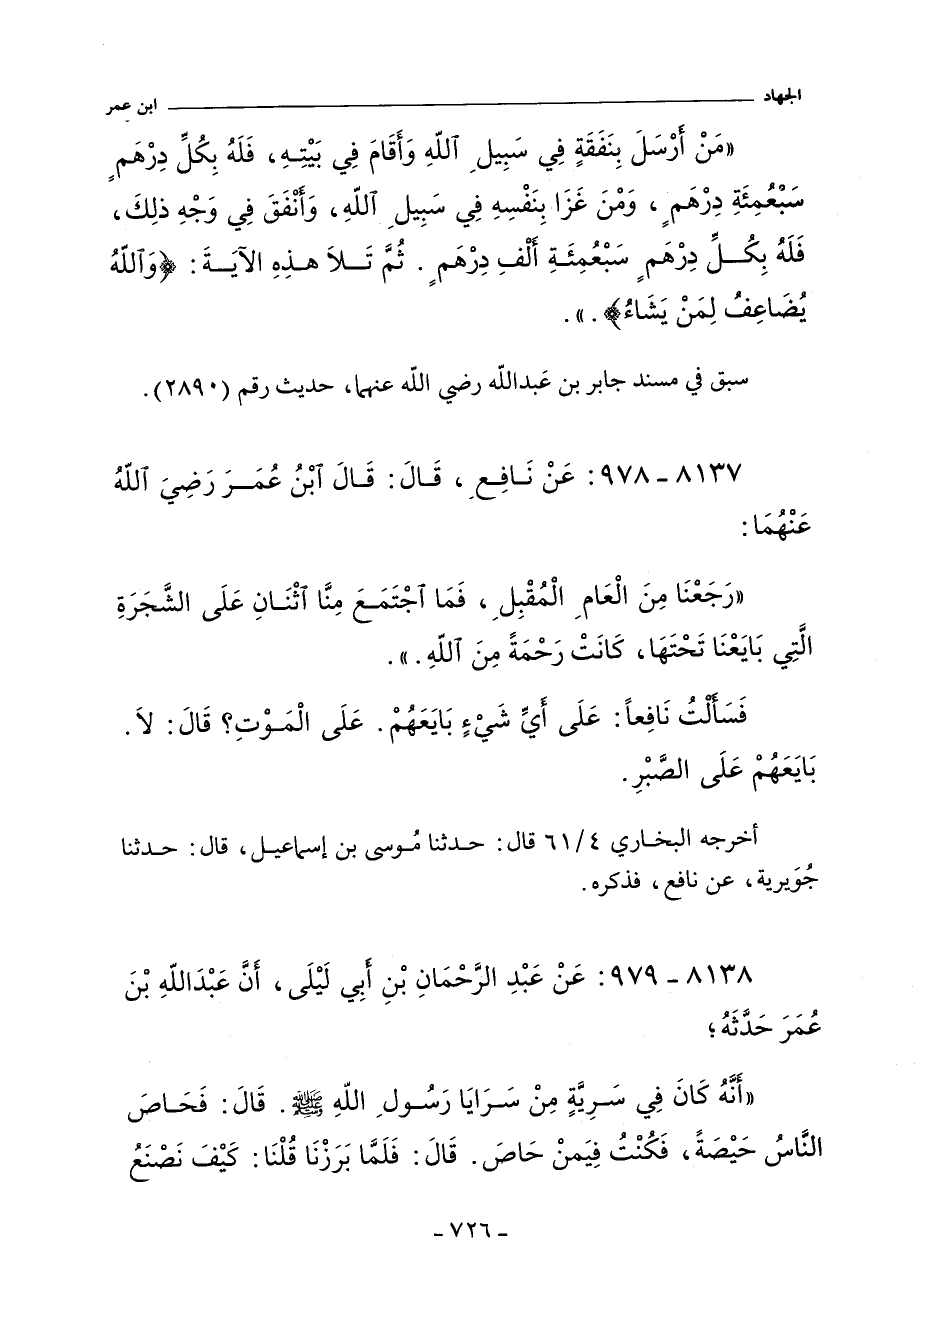 الجهاد ابن عمر
«مَنْ أَرْسَلَ بِنَفَقَةٍ فِي سَبِيلِ ٱللّهِ وَأَقَامَ فِي بَيْتِهِ، فَلَهُ بِكُلِّ دِرْهَمٍ
سَبْعُمِئَةِ دِرْهَمٍ، وَمْنَ غَزَا بِنَفْسِهِ فِي سَبِيلِ ٱللّهِ، وَأَنْفَقَ فِي وَجْهِ ذلِكَ،
فَلَهُ بِكُلِّ دِرْهَمٍ سَبْعُمِئَةِ أَلْفِ دِرْهَمٍ. ثُمَّ تَلاَ هذِهِ الآيَةَ: ﴿وَٱللّهُ
يُضَاعِفُ لِمَنْ يَشَاءُ﴾.».
سبق في مسند جابر بن عَبدالله رضي الله عنهما، حديث رقم (٢٨٩٠).
٨١٣٧ - ٩٧٨: عَنْ نَافِعٍ، قَالَ: قَالَ ٱبْنُ عُمَرَ رَضِيَ ٱللّهُ
عَنْهُمَا:
«رَجَعْنَا مِنَ الْعَامِ الْمُقْبِلِ، فَمَا ٱجْتَمَعَ مِنَّا ٱثْنَانِ عَلَى الشَّجَرَةِ
الَّتِي بَايَعْنَا تَحْتَهَا، كَانَتْ رَحْمَةً مِنَ ٱللّهِ.».
فَسَأَلْتُ نَافِعاً: عَلَى أَيِّ شَيْءٍ بَايَعَهُمْ. عَلَى الْمَوْتِ؟ قَالَ: لاَ.
بَايَعَهُمْ عَلَى الصَّبْرِ.
أخرجه البخاري ٦١/٤ قال: حدثنا مُوسى بن إسماعيل، قال: حدثنا
جُوَيرية، عن نافع، فذكره.
٨١٣٨ - ٩٧٩: عَنْ عَبْدِ الرَّحْمَانِ بْنِ أَبِي لَيْلَى، أَنَّ عَبْدَاللّهِ بْنَ
عُمَرَ حَدَّثَهُ؛
«أَنَّهُ كَانَ فِي سَرِيَّةٍ مِنْ سَرَايَا رَسُولِ اللّهِ ﷺ. قَالَ: فَحَاصَ
النَّاسُ حَيْصَةً، فَكُنْتُ فِيمَنْ حَاصَ. قَالَ: فَلَمَّا بَرَزْنَا قُلْنَا: كَيْفَ نَصْنَعُ
- ٧٢٦ -